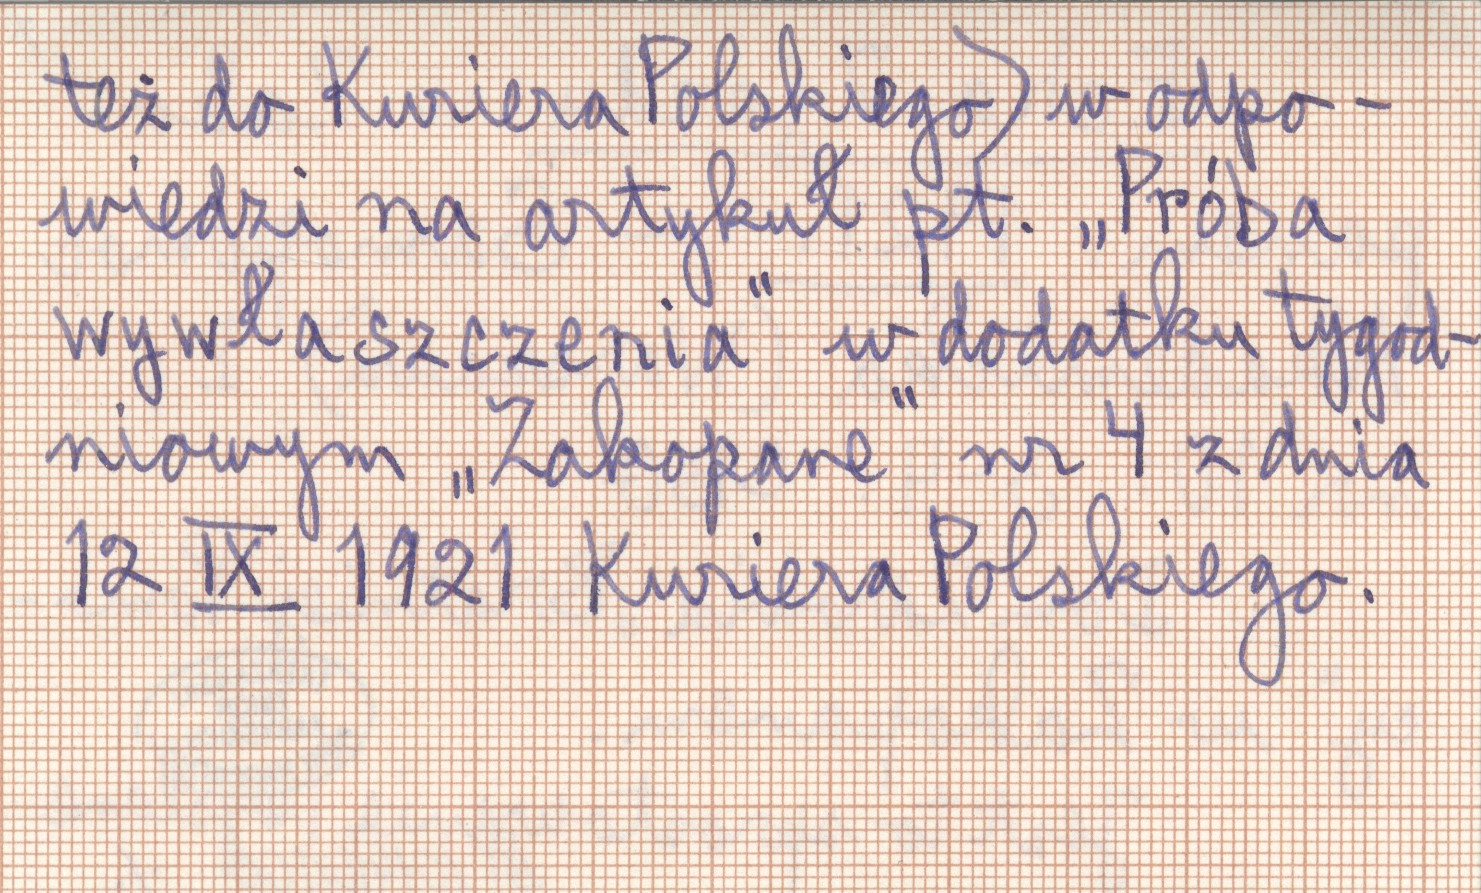 też do Kuriera Polskiego) w odpo-
wiedzi na artykuł pt. „Próba
wywłaszczenia" w dodatku tygod-
niowym „Zakopane" nr 4 z dnia
12 IX 1921 Kuriera Polskiego.